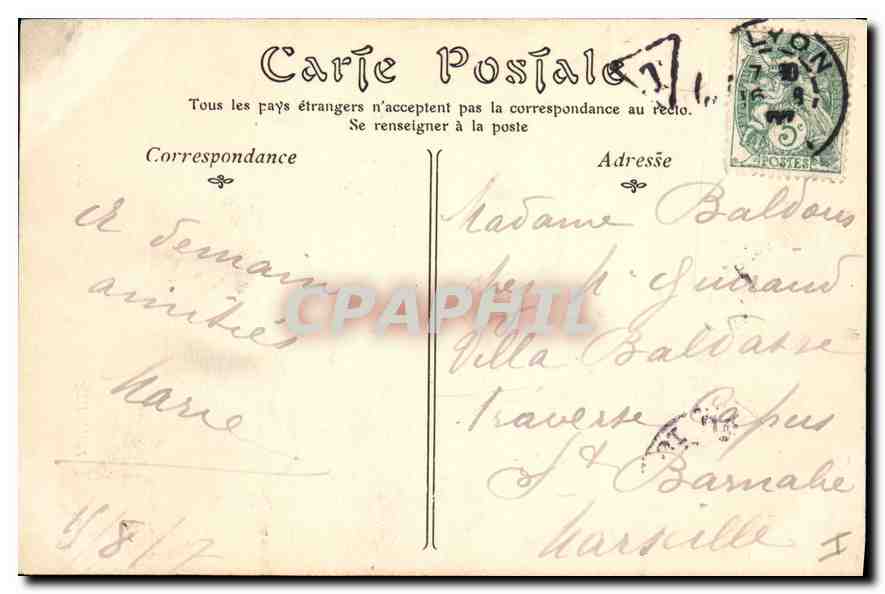 Carte Postale
Tous les pays étrangers n'acceptent pas la correspondance au recto.
Se renseigner à la poste
Correspondance
Adresse
LYON
5c
POSTES
T
A demain
amitiés
Marie
15/8/7
Madame Baldous
chez Mr Guiraud
Villa Baldasse
Traverse Capus
St Barnabé
Marseille
I
CPAPHIL